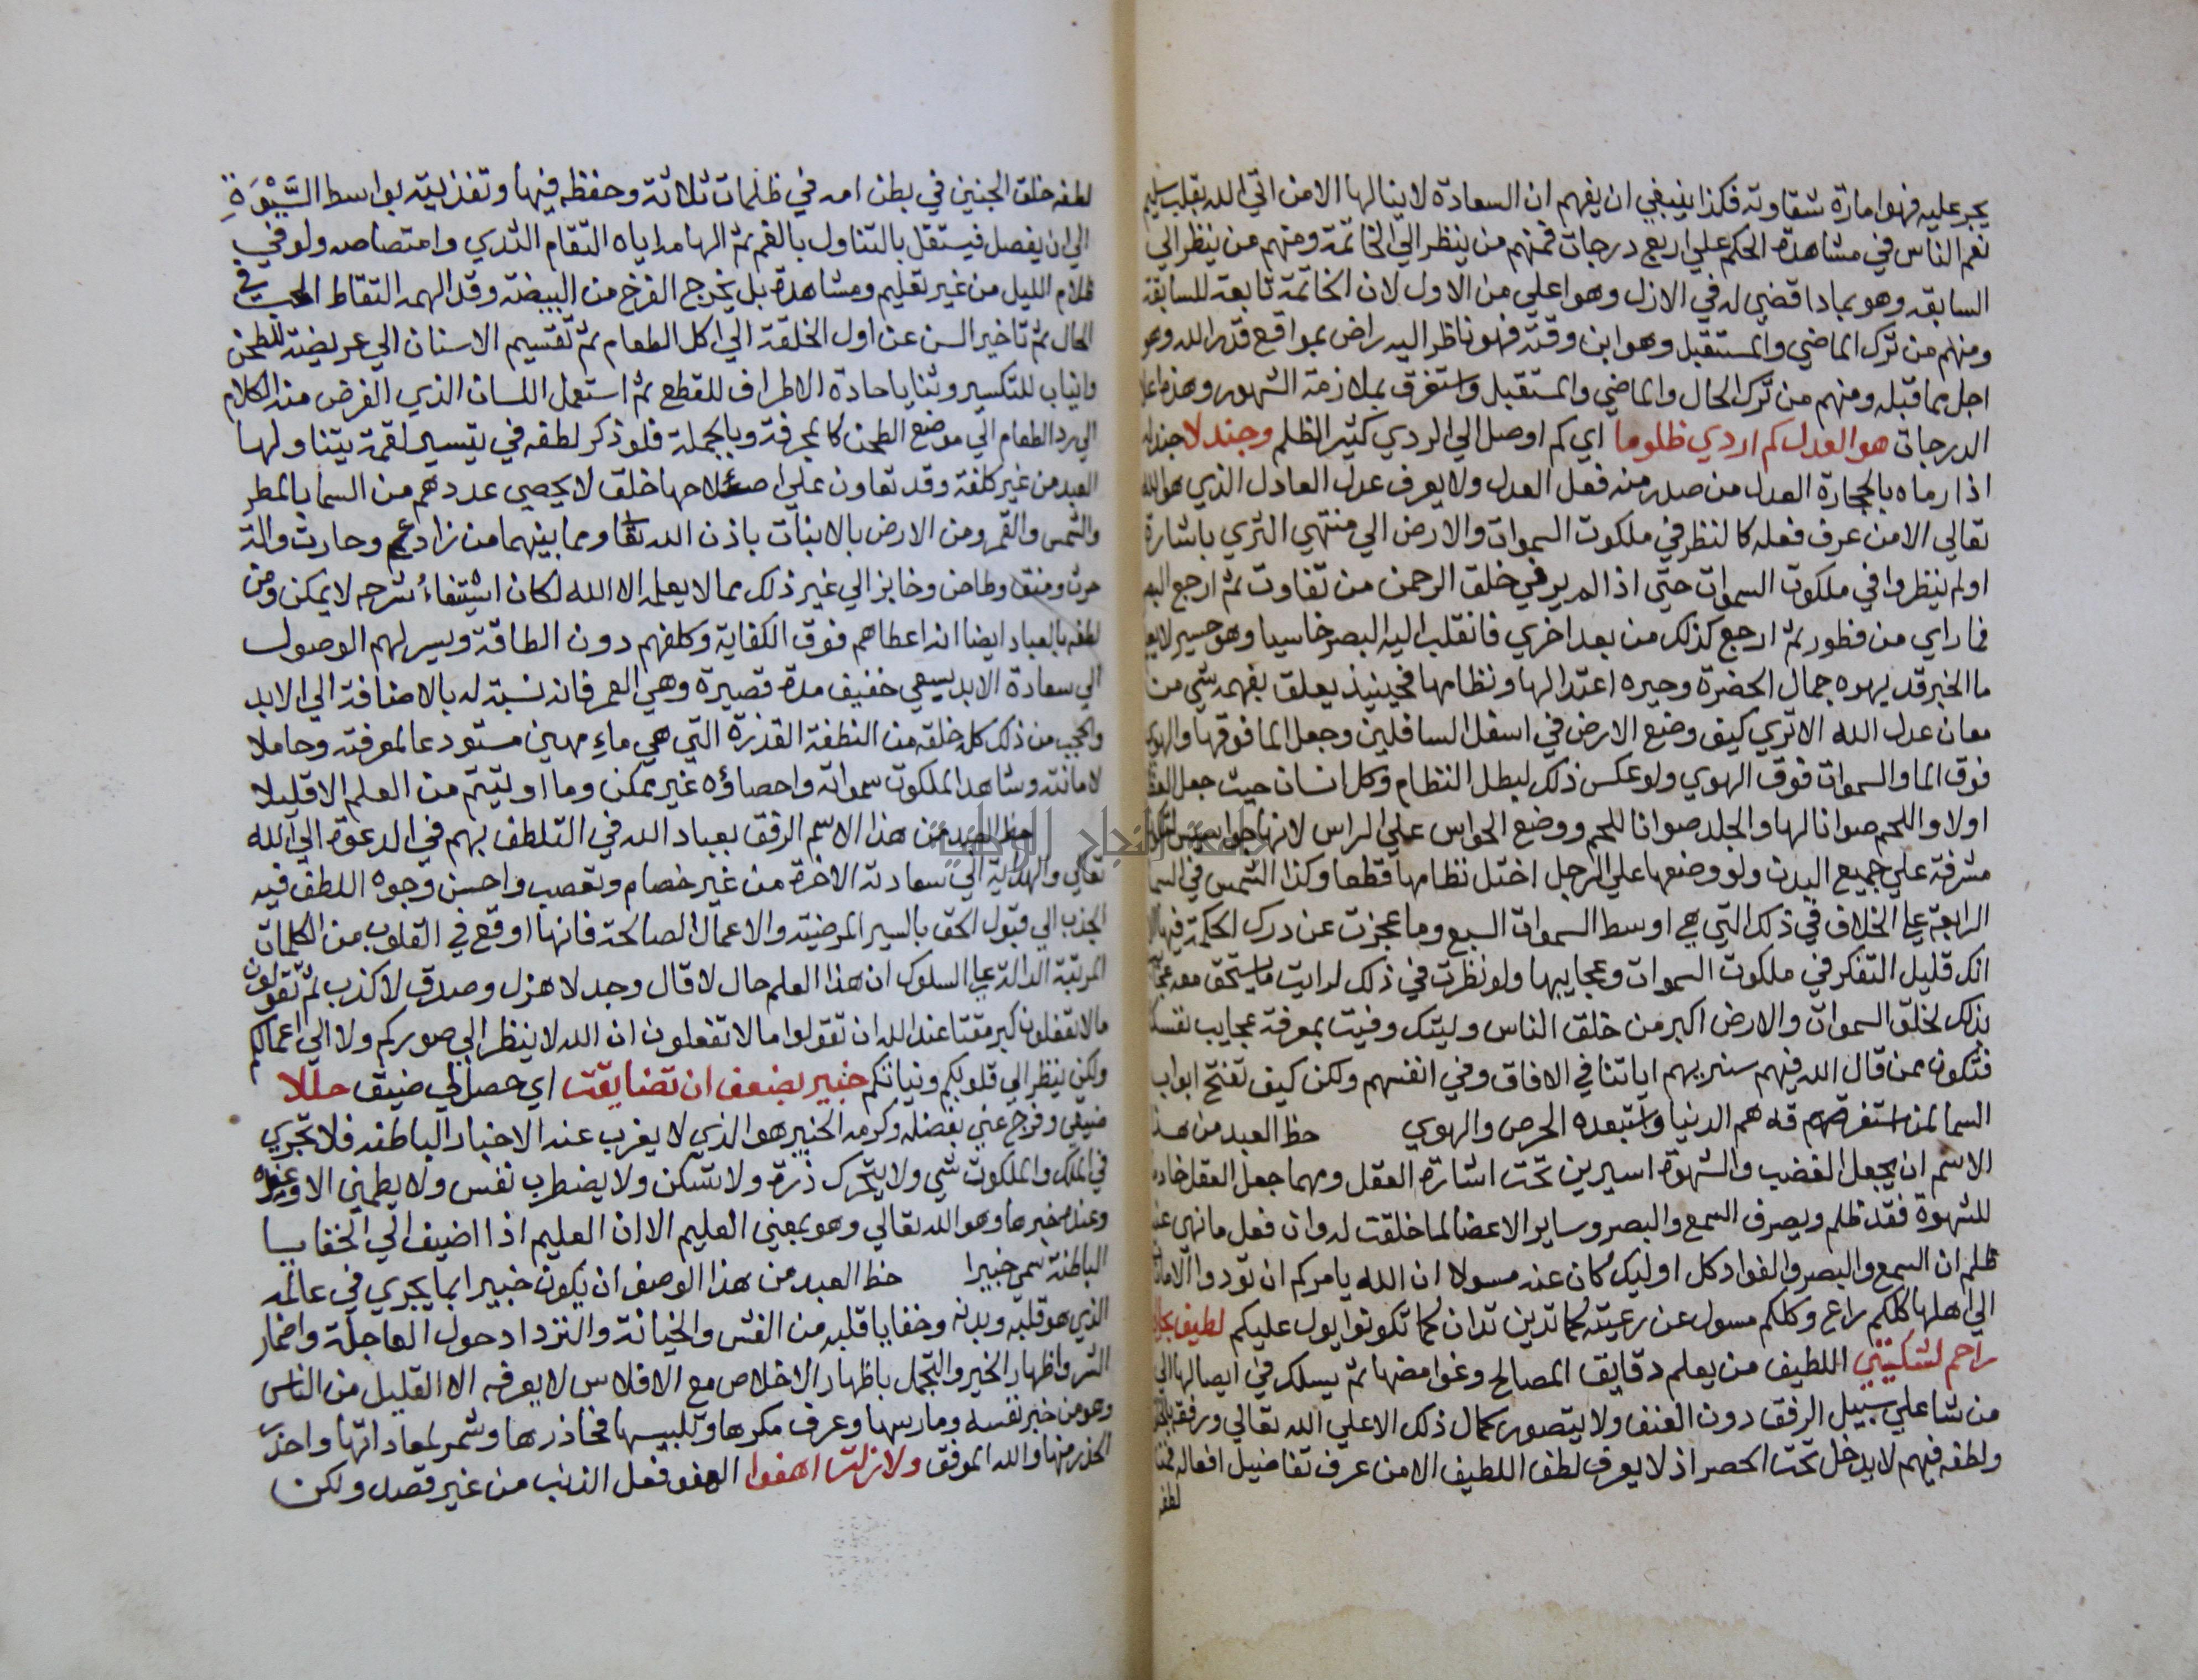 يجر عليه فهو امارة شقاوته فكذا ينبغي ان يفهم ان السعادة لا ينالها الا من اتي الله بقلب سليم
نعم الناس في مشاهدة الحكم علي اربع درجات فمنهم من ينظر الي الخاتمة ومنهم من ينظر الي
السابقه وهو بماذا قضي له في الازل وهو اعلي من الاول لان الخاتمة تابعة للسابقة
ومنهم من ترك الماضي والمستقبل وهو ابن وقته فهو ناظر اليه راض بمواقع قدر الله وهو
اجل مما قبله ومنهم من ترك الحال والماضي والمستقبل واستغرق بملازمة الشهود وهذه اعلا
الدرجات هو العدل كم اردي ظلوما اي كم اوصل الي الردي كثير الظلم وجندلا جندله
اذا رماه بالحجارة العدل من صدر منه فعل العدل ولا يعرف عدل العادل الذي هو الله
تعالي الا من عرف فعله كالنظر في ملكوت السموات والارض الي منتهي الثري باشارة
اولم ينظروا في ملكوت السموات حتي اذا لم ير في خلق الرحمن من تفاوت ثم ارجع البصر
فما راي من فطور ثم ارجع كذلك من بعد اخري فانقلب اليه البصر خاسيا وهو حسير لا يعلم
ما الخبر قد بهره جمال الحضرة وحيره اعتدالها ونظامها فحينيذ يعلق بفهمه شي من
معان عدل الله الا تري كيف وضع الارض في اسفل السافلين وجعل الما فوقها والهوي
فوق الما والسموات فوق الهوي ولو عكس ذلك لبطل النظام وكل انسان حيث جعل العظم
اولا واللحم صوانا لها والجلد صوانا للحم ووضع الحواس علي الراس لانها جواسيس لتكون
مشرفة علي جميع البدن ولو وضعها علي الرجل اختل نظامها قطعا وكذا الشمس في السما
الرابعة علي الخلاف في ذلك التي هي اوسط السموات السبع وما عجزت عن درك الحكمة فيها الا
انك قليل التفكر في ملكوت السموات وعجايبها ولو نظرت في ذلك لرايت ما يستحق معه عجبا
بذلك لخلق السموات والارض اكبر من خلق الناس وليتك وفيت بمعرفة عجايب نفسك
فتكون ممن قال الله فيهم سنريهم اياتنا في الافاق وفي انفسهم ولكن كيف تفتح ابواب
السما لمن استغرقهم هم الدنيا واستبعده الحرص والهوي حظ العبد من هذا
الاسم ان يجعل الغضب والشهوة اسيرين تحت اشارة العقل ومهما جعل العقل خادما
للشهوة فقد ظلم ويصرف السمع والبصر وساير الاعضا لما خلقت له وان فعل ما نهي عنه
ظلم ان السمع والبصر والفواد كل اوليك كان عنه مسولا ان الله يامركم ان تودوا الامانات
الي اهلها كلكم راع وكلكم مسول عن رعيته كما تدين تدان كما تكونوا يول عليكم لطيف بحالي
راحم لشكيتي اللطيف من يعلم دقايق المصالح وغوامضها ثم يسلك في ايصالها الي
من شا علي سبيل الرفق دون العنف ولا يتصور كمال ذلك الا علي الله تعالي ورفقه بالخلق
ولطفه فيهم لا يدخل تحت الحصر اذ لا يعرف لطف اللطيف الا من عرف تفاضيل افعاله فمن
لطفه
لطفه خلق الجنين في بطن امه في ظلمات ثلاثة وحفظه فيها وتغذيته بواسط السَّبْوَةِ
الي ان يفصل فيستقل بالتناول بالفم ثم الهامه اياه التقام الثدي وامتصاصه ولو في
ظلام الليل من غير تعليم ومشاهدة بل يخرج الفرخ من البيضة وقد الهمه التقاط الحب في
الحال ثم تاخير السن عن اول الخلقة الي اكل الطعام ثم تقسيم الاسنان الي عريضة للطحن
وانياب للتكسير وثنايا حادة الاطراف للقطع ثم استعمل اللسان الذي الغرض منه الكلام
الي رد الطعام الي موضع الطحن كالمجرفة وبالجملة فلو ذكر لطفه في تيسير لقمة يتناولها
العبد من غير كلفة وقد تعاون علي اصلاحها خلق لا يحصي عددهم من السما بالمطر
والشمس والقمر ومن الارض بالانبات باذن الله تعا ومما بينهما من زادعم وحارث والة
حرث ومنق وطاحن وخابز الي غير ذلك مما لا يعلمه الا الله لكان استيفاءُ شرحه لا يمكن ومن
لطفه بالعباد ايضا انه اعطاهم فوق الكفاية وكلفهم دون الطاقة ويسر لهم الوصول
الي سعادة الابد بسعي خفيف مدة قصيرة وهي العمر فانه نسبة له بالاضافة الي الابد
والعجب من ذلك كله خلقه من النطفة القذرة التي هي ماء مهين مستودعا لمعرفته وحاملا
لامانته وشاهدا لملكوت سمواته واحصاؤه غير ممكن وما اوتيتم من العلم الا قليلا
حظ العبد من هذا الاسم الرفق بعباد الله في التلطف بهم في الدعوة الي الله
تعالي والهداية الي سعادة الاخرة من غير خصام وتعصب واحسن وجوه اللطف فيه
الجذب الي قبول الحق بالسير المرضية والاعمال الصالحة فانها اوقع في القلوب من الكلمات
المرتبة الدالة علي السلوك ان هذا العلم حال لا قال وجد لا هزل وصدق لا كذب لم تقولون
ما لا تفعلون كبر مقتا عند الله ان تقولوا ما لا تفعلون ان الله لا ينظر الي صوركم ولا الي اعمالكم
ولكن ينظر الي قلوبكم ونياتكم خبير بضعف ان تضايقت اي حصل لي ضيق حللا
ضيقي وفرج عني بفضله وكرمه الخبير هو الذي لا يعزب عنه الاخبار الباطنه فلا تجري
في الملك والملكوت شي ولا يتحرك ذرة ولا تسكن ولا يضطرب نفس ولا يطمين الا وعنده
وعند مخبرها وهو الله تعالي وهو بمعني العليم الا ان العليم اذا اضيف الي الخفايا
الباطنة سمي خبيرا حظ العبد من هذا الوصف ان يكون خبيرا بما يجري في عالمه
الذي هو قلبه وبدنه وخفايا قلبه من الغش والخيانة والتزداد حول العاجلة واضمار
الشر واظهار الخير والتجمل باظهار الاخلاص مع الافلاس لا يعرفه الا القليل من الناس
وهو من خبر نفسه ومارسها وعرف مكرها وتلبيسها فحاذرها وشمر لمعاداتها واخذ
الحذر منها والله الموفق ولا زلت اهفوا الهفو فعل الذنب من غير قصد ولكن
جامعة النجاح الوطنية